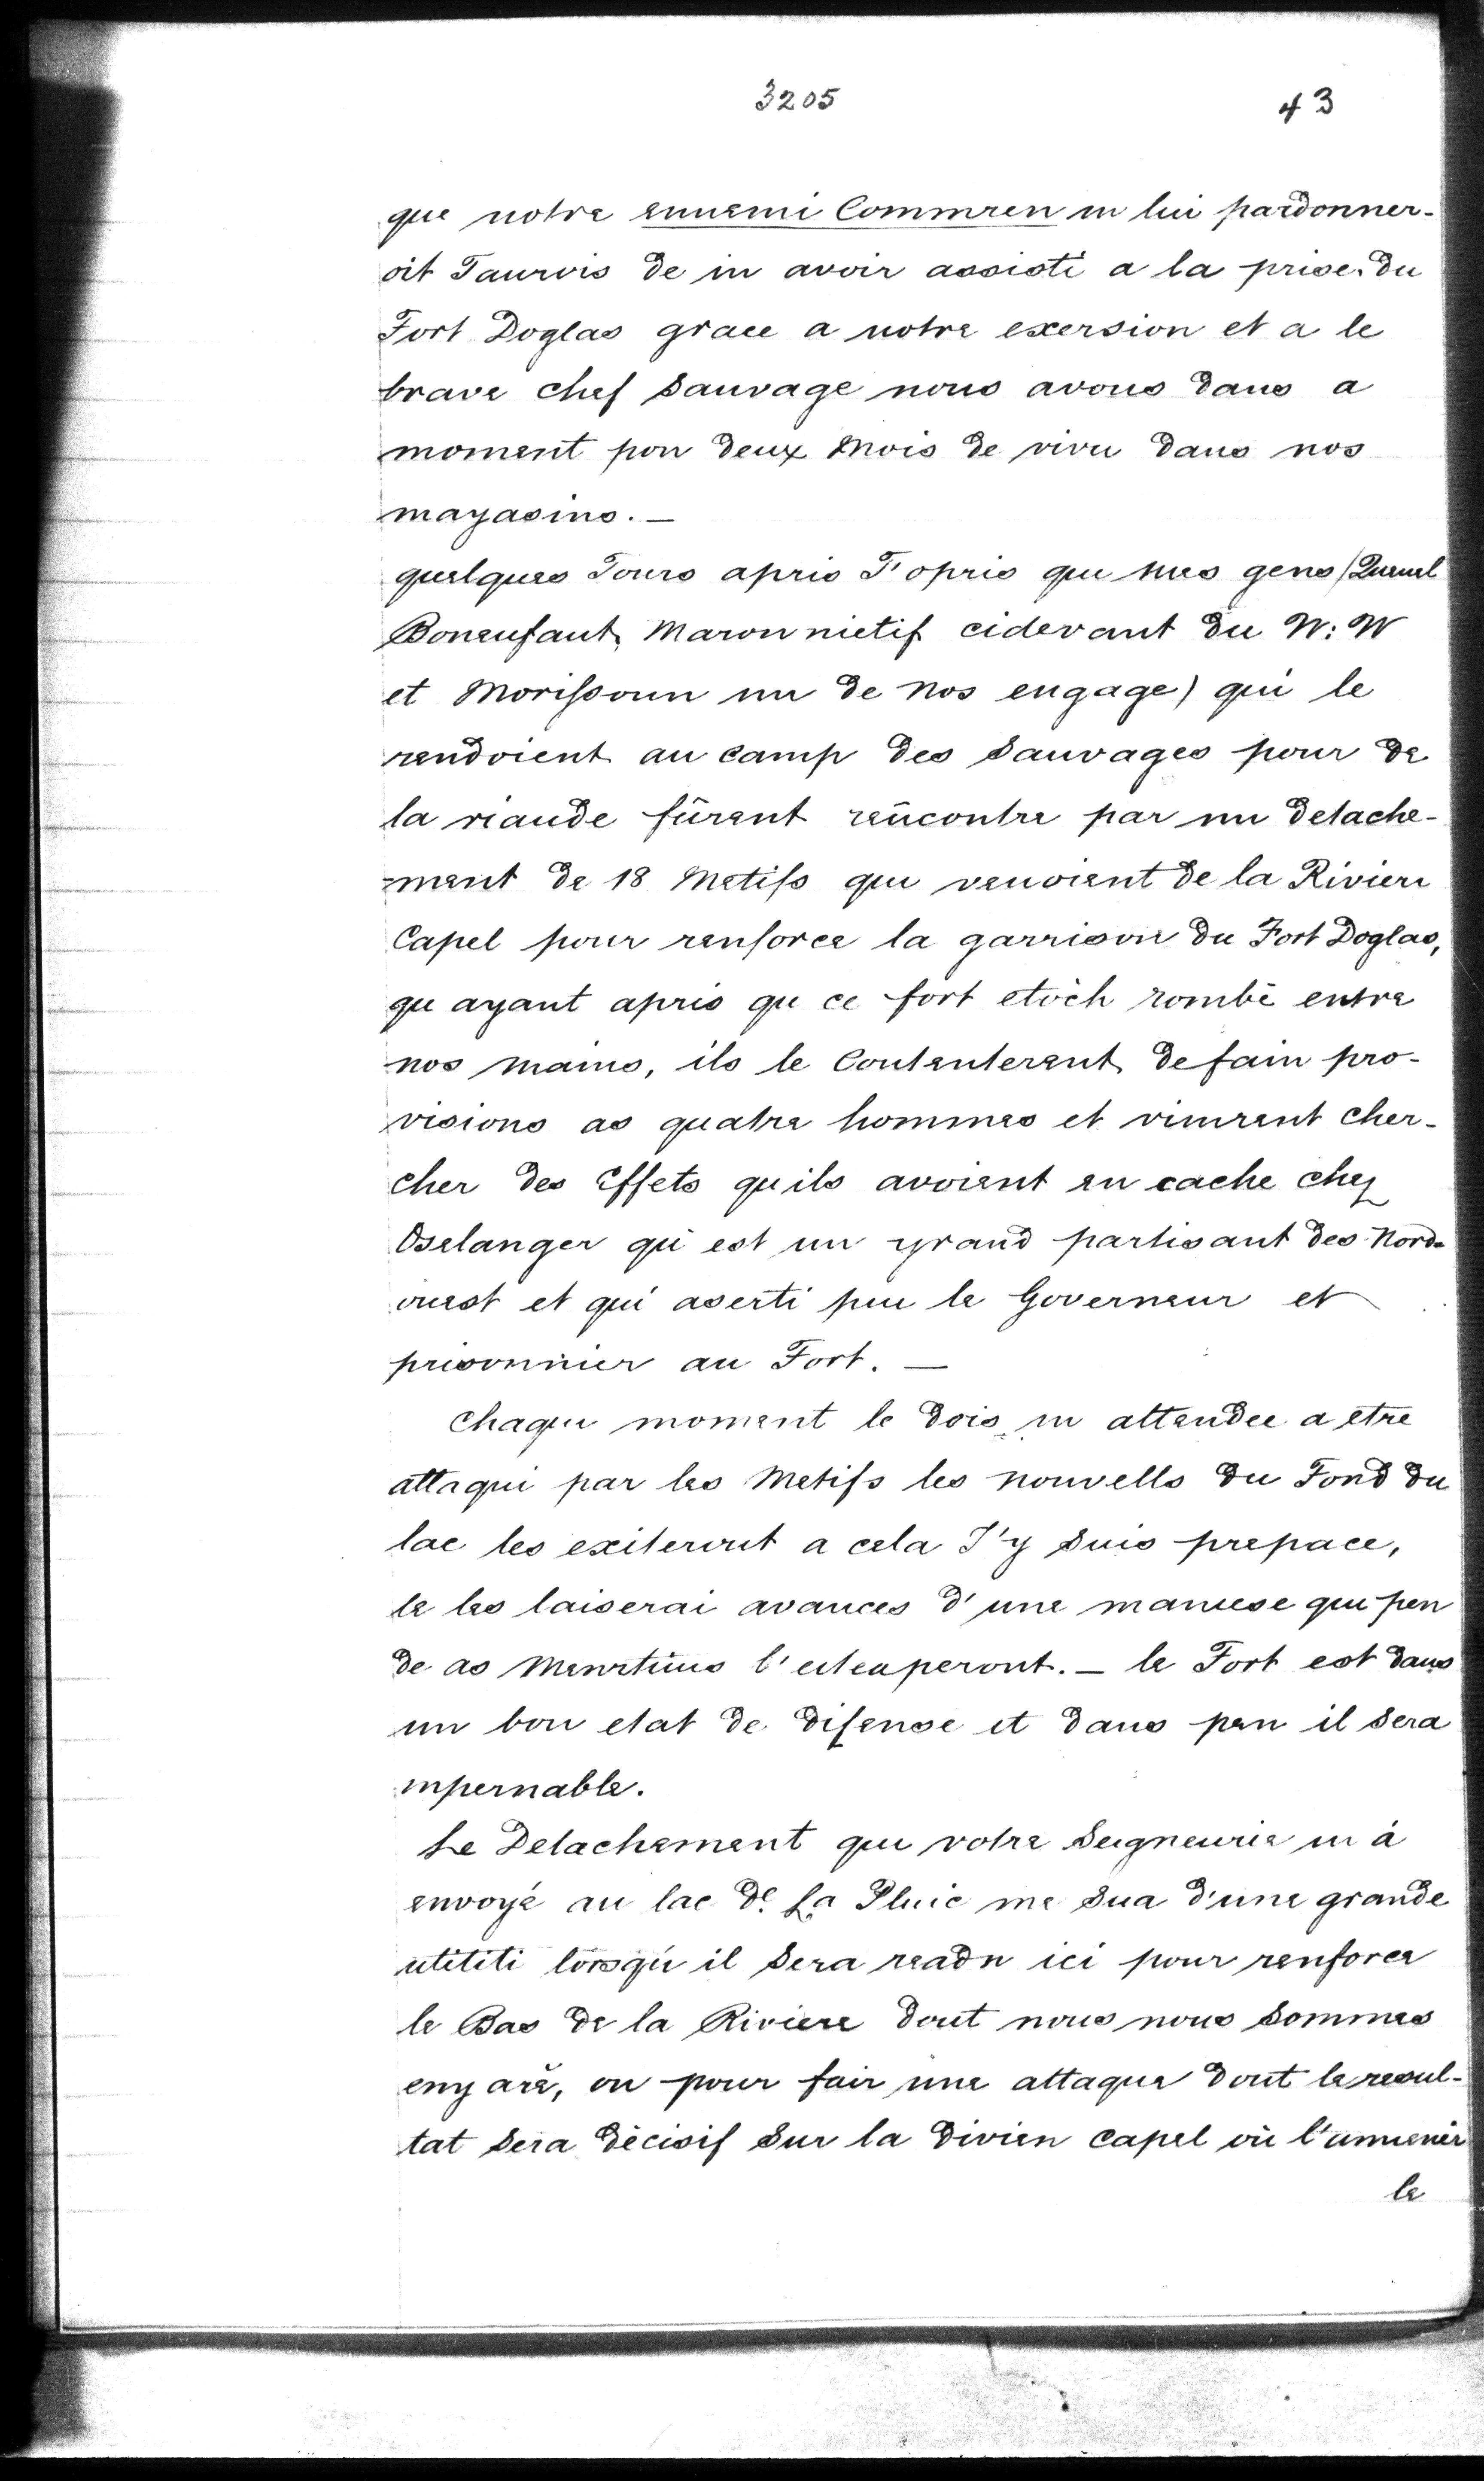 3205
43
que notre ennemi Commren m lui pardonner-
oit Taurois de in avoir assisti a la prise du
Fort Doglas grace a notre exersion et a le
brave chef Sauvage nous avons dans a
moment pon deux Mois de vivu dans nos
mayasins. —
quelques Tours apris T'opris que mes gens (Quenel
Bonenfant, Maron mietif cidevant du W: W
et Morissoun un de nos engage) qui le
rendoient au camp des Sauvages pour de
la viande fûrent rencontre par un detache-
ment de 18 Metifs qui venoient de la Riviere
Capel pour renforce la garrison du Fort Doglas,
qu ayant apris qu ce fort etoèh rombè entre
nos mains, ils le Contenterent de fain pro-
visions as quatre hommes et vinrent cher-
cher des Effets qu ils avoient en cache chez
Oselanger qui est un grand partisant des Nord-
ouest et qui aserti pue le Governeur et
prisonnier au Fort. —
Chaque moment le dois m attendee a etre
attaqui par les Metifs les nouvells du Fond du
lac les exiteront a cela J'y suis prepace,
le les laiserai avances d'une maniese que pen
de as l'eiteaperont. — le Fort est dans
un bon etat de difense et dans pen il Sera
mpernable.
Le Detachement que votre Seigneurie m à
envoyé au lac de La Pluie me Sua d'une grande
utititi lorsqu' il Sera readn ici pour renforce
le Bas de la Riviere dont nous nous sommes
eny arè, on pour fair une attaque dont le resul-
tat Sera dècisif Sur la divien Capel où l'annenir
le